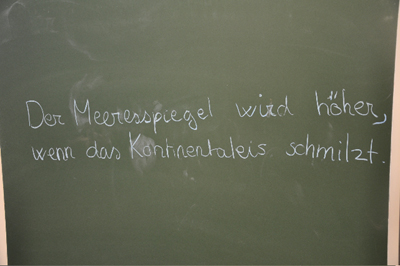 Der Meeresspiegel wird höher,
wenn das Kontinentaleis schmilzt.